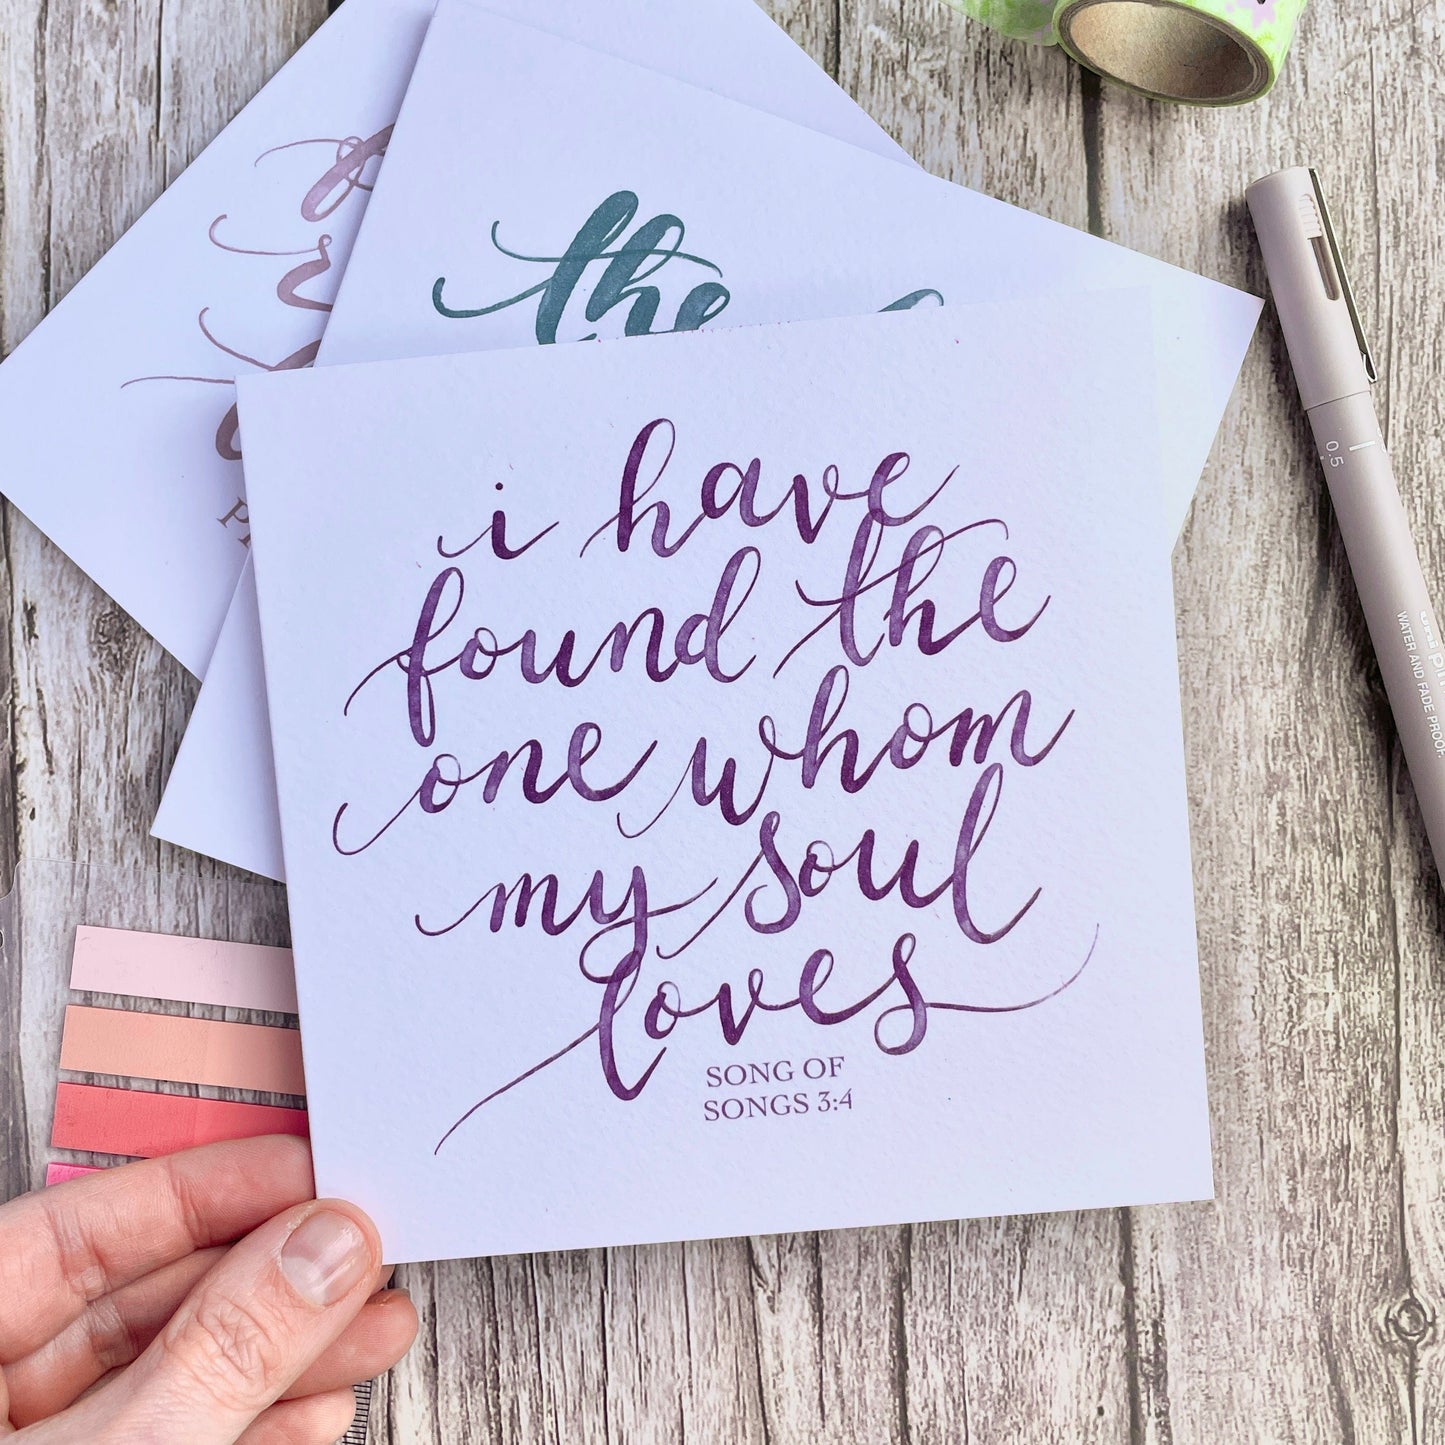 the
i have
found the
one whom
my soul
loves
SONG OF
SONGS 3:4
0.5
uni pin
WATER AND FADE PROOF